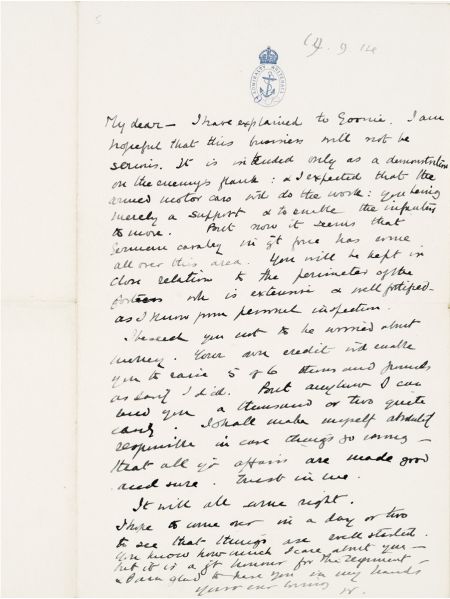 9. 14
ADMIRALTY WHITEHALL
My dear – I have explained to Goonie. I am
hopeful that this business will not be
serious. It is intended only as a demonstration
on the enemy's flank : & I expected that the
armed motor cars wd do the work : you being
merely a support & to enable the infantry
to move. But now it seems that
German cavalry in gt force has come
all over this area. You will be kept in
close relation to the perimeter of the
fortress wh is extensive & well fortified–
as I know from personal inspection.
I beseech you not to be worried about
money. Your own credit wd enable
you to raise 5 or 6 thousand pounds
as easily I did. But anyhow I can
lend you a thousand or two quite
easily. I shall make myself absolutely
responsible in case things go wrong –
that all yr affairs are made good
and sure. Trust in me.
It will all come right.
I hope to come over in a day or two
to see that things are well started.
You know how much I care about you –
but it is a gt honour for the regiment
& I am glad to have you in my hands
Your ever loving W.